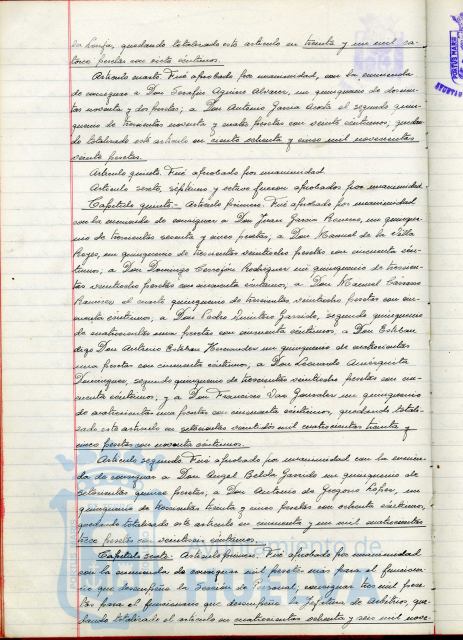 la Lonja, quedando totalizado este artículo en treinta y un mil ca-
torce pesetas con siete céntimos.
Artículo cuarto. Fué aprobado por unanimidad, con la enmienda
de consignar a Don Serafín Aguirre Alvarez, un quinquenio de doscien-
tas noventa y dos pesetas; a Don Antonio García Acosta el segundo quin-
quenio de trescientas noventa y cuatro pesetas con veinte céntimos, quedan-
do totalizado este artículo en ciento ochenta y cinco mil novecientas
veinte pesetas.
Artículo quinto. Fué aprobado por unanimidad.
Artículo sexto, séptimo y octavo fueron aprobados por unanimidad.
Capítulo quinto.- Artículo primero. Fué aprobado por unanimidad
con la enmienda de consignar a Don Juan García Romero, un quinque-
nio de trescientas sesenta y cinco pesetas, a Don Manuel de la Villa
Reyes, un quinquenio de trescientas veintiocho pesetas con cincuenta cén-
timos; a Don Domingo Rodríguez un quinquenio de trescien-
tas veintiocho pesetas con cincuenta céntimos; a Don Manuel
Ramírez el cuarto quinquenio de trescientas veintiocho pesetas con cin-
cuenta céntimos; a Don Pedro Quintero Garrido, segundo quinquenio
de cuatrocientas una pesetas con cincuenta céntimos; a Don Esteban
digo Don Antonio Esteban Hernández un quinquenio de cuatrocientas
una pesetas con cincuenta céntimos, a Don Leonardo
Domínguez, segundo quinquenio de trescientas veintiocho pesetas con cin-
cuenta céntimos; y a Don Francisco Vaz González un quinquenio
de cuatrocientas una pesetas con cincuenta céntimos, quedando totali-
zado este artículo en setecientas veintidós mil cuatrocientas treinta y
cinco pesetas con noventa céntimos.
Artículo segundo. Fué aprobado por unanimidad con la enmien-
da de consignar a Don Angel Belda Garrido un quinquenio de
setecientas quince pesetas, a Don Antonio de Gregorio López, un
quinquenio de trescientas treinta y cinco pesetas con ochenta céntimos,
quedando totalizado este artículo en cincuenta y un mil cuatrocientas
trece pesetas con veintiseis céntimos.
Capítulo sexto.- Artículo primero. Fué aprobado por unanimidad
con la enmienda de consignar mil pesetas más para el funciona-
rio que desempeña la Sección de Personal; consignar tres mil pese-
tas para el funcionario que desempeña la Jefatura de Arbitrios, que-
dando totalizado el artículo en cuatrocientas setenta y seis mil nove-